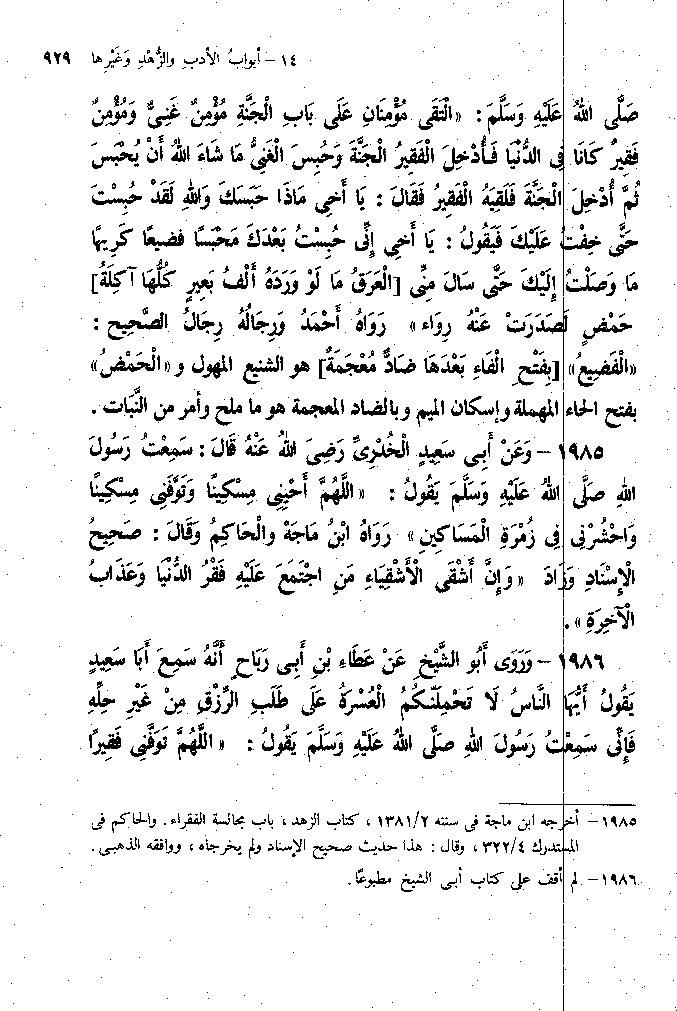 ١٤ – أبوابُ الأدبِ والزُّهْدِ وَغَيْرِها ٩٢٩
صَلَّى اللهُ عَلَيْهِ وَسَلَّمَ : «الْتَقَى مُؤْمِنَانِ عَلَى بَابِ الْجَنَّةِ مُؤْمِنٌ غَنِيٌّ وَمُؤْمِنٌ
فَقِيرٌ كَانَا فِى الدُّنْيَا فَأُدْخِلَ الْفَقِيرُ الْجَنَّةَ وَحُبِسَ الْغَنِيُّ مَا شَاءَ اللهُ أَنْ يُحْبَسَ
ثُمَّ أُدْخِلَ الْجَنَّةَ فَلَقِيَهُ الْفَقِيرُ فَقَالَ : يَا أَخِى مَاذَا حَبَسَكَ وَاللهِ لَقَدْ حُبِسْتَ
حَتَّى خِفْتُ عَلَيْكَ فَيَقُولُ : يَا أَخِى إِنِّى حُبِسْتُ بَعْدَكَ مَحْبَسًا فَضِيعًا كَرِيهًا
مَا وَصَلْتُ إِلَيْكَ حَتَّى سَالَ مِنِّى [الْعَرَقُ مَا لَوْ وَرَدَهُ أَلْفُ بَعِيرٍ كُلُّهَا آكِلَةُ]
حَمْضٍ لَصَدَرَتْ عَنْهُ رِوَاء» رَوَاهُ أَحْمَدُ وَرِجَالُهُ رِجَالُ الصَّحِيحِ :
«الْفَضِيعُ» [بِفَتْحِ الْفَاءِ بَعْدَهَا ضَادٌ مُعْجَمَةٌ] هو الشنيع المهول و«الْحَمْضُ»
بفتح الحاء المهملة وإسكان الميم وبالضاد المعجمة هو ما ملح وأمر من النَّبَات .
١٩٨٥ – وَعَنْ أَبِى سَعِيدٍ الْخُدْرِيِّ رَضِىَ اللهُ عَنْهُ قَالَ : سَمِعْتُ رَسُولَ
اللهِ صَلَّى اللهُ عَلَيْهِ وَسَلَّمَ يَقُولُ : «اللَّهُمَّ أَحْيِنِى مِسْكِينًا وَتَوَفَّنِى مِسْكِينًا
وَاحْشُرْنِى فِى زُمْرَةِ الْمَسَاكِينِ» رَوَاهُ ابْنُ مَاجَهْ وَالْحَاكِمُ وَقَالَ : صَحِيحُ
الْإِسْنَادِ وَزَادَ «وَإِنَّ أَشْقَى الْأَشْقِيَاءِ مَنِ اجْتَمَعَ عَلَيْهِ فَقْرُ الدُّنْيَا وَعَذَابُ
الْآخِرَةِ» .
١٩٨٦ – وَرَوَى أَبُو الشَّيْخِ عَنْ عَطَاءِ بْنِ أَبِى رَبَاحٍ أَنَّهُ سَمِعَ أَبَا سَعِيدٍ
يَقُولُ أَيُّهَا النَّاسُ لَا تَحْمِلَنَّكُمُ الْعُسْرَةُ عَلَى طَلَبِ الرِّزْقِ مِنْ غَيْرِ حِلِّهِ
فَإِنِّى سَمِعْتُ رَسُولَ اللهِ صَلَّى اللهُ عَلَيْهِ وَسَلَّمَ يَقُولُ : «اللَّهُمَّ تَوَفَّنِى فَقِيرًا
١٩٨٥ – أخرجه ابن ماجة فى سننه ١٣٨١/٢ ، كتاب الزهد ، باب مجالسة الفقراء . والحاكم فى
المستدرك ٣٢٢/٤ ، وقال : هذا حديث صحيح الإسناد ولم يخرجاه ، ووافقه الذهبى .
١٩٨٦ – لم أقف على كتاب أبى الشيخ مطبوعًا .